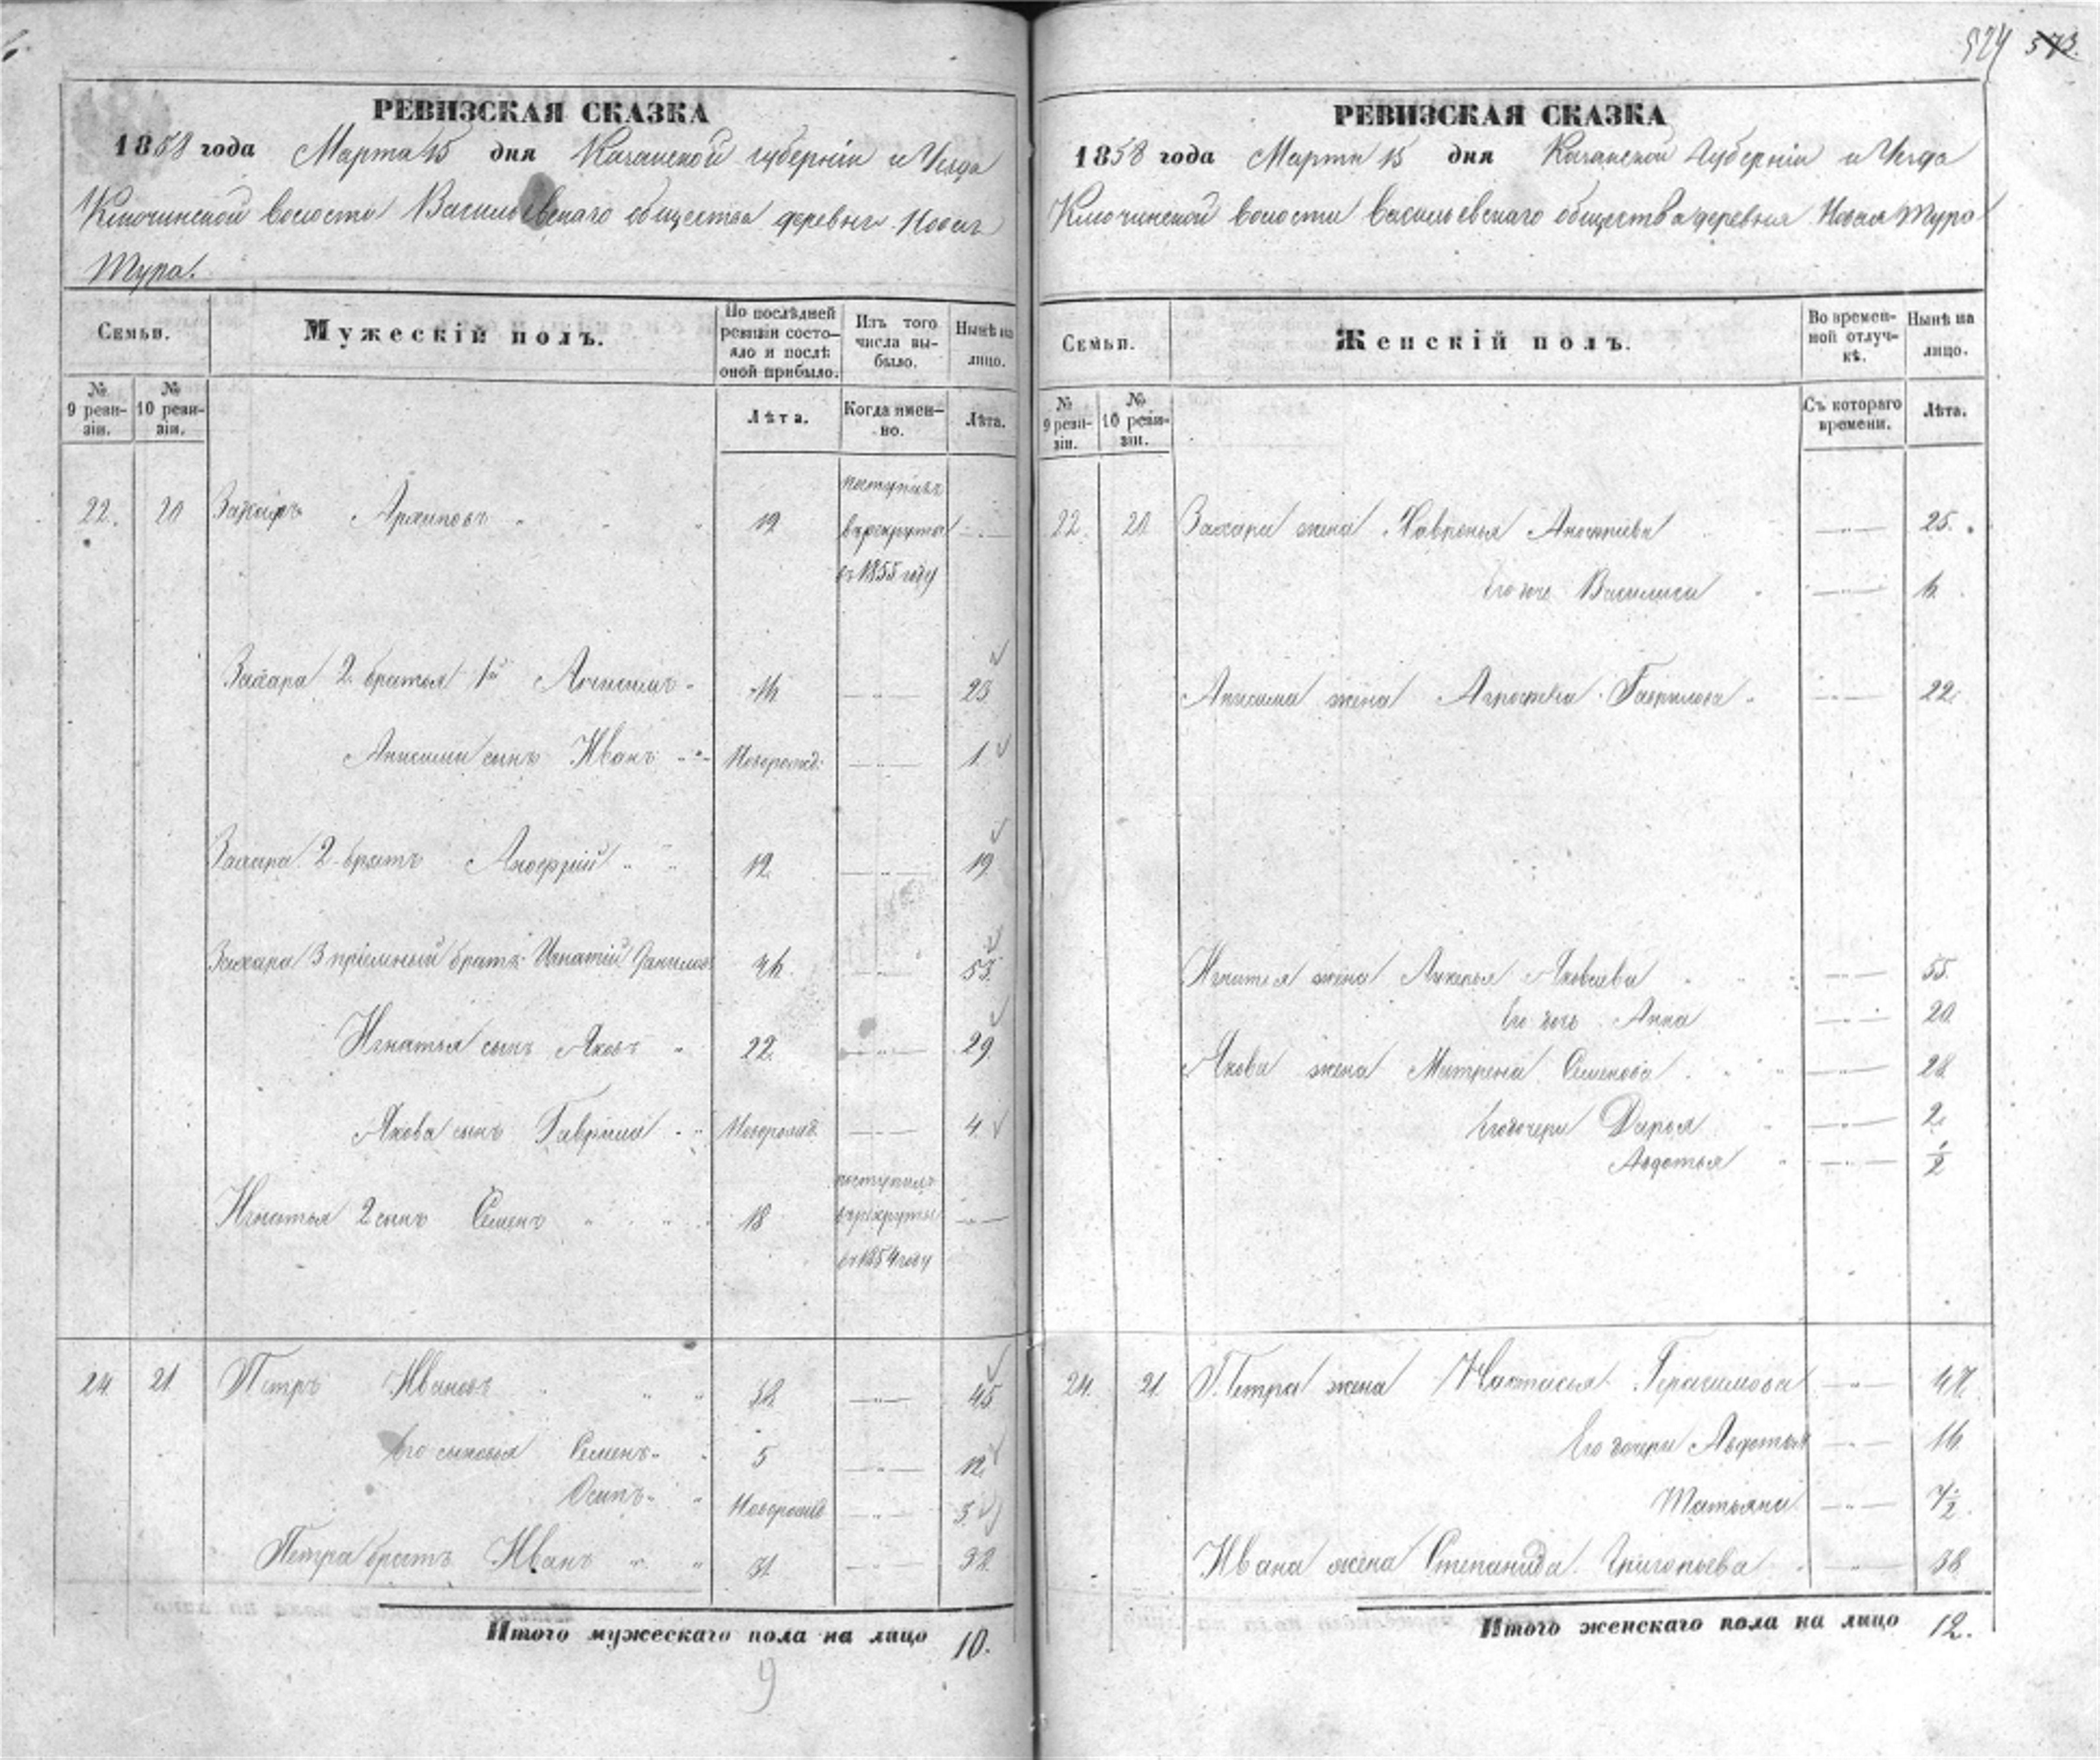 524 573.
РЕВИЗСКАЯ СКАЗКА
1858 года Марта 15 дня Казанской губерніи и Уезда
Ключинской волости Васильевскаго общества деревни Новая
Тура.
Семьи.
Мужескій полъ.
По послѣдней ревизіи состояло и послѣ оной прибыло.
Изъ того числа выбыло.
Нынѣ на лицо.
№ 9 ревизіи.
№ 10 ревизіи.
Лѣта.
Когда именно.
Лѣта.
22. 20 Захаръ Архиповъ 19 поступилъ в рекруты въ 1855 году
Захара 2 братья 1й Анисимъ 16 23
Анисима сынъ Иванъ Новорожд. 1
Захара 2 братъ Анофрій 12 19
Захара 3 пріемный братъ Игнатій Данилов 46 53
Игнатья сынъ Яковъ 22 29
Якова сынъ Гаврила Новорожд. 4
Игнатья 2 сынъ Семенъ 18 поступилъ в рекруты въ 1854 году
24 21 Петръ Ивановъ 38 45
Его сыновья Семенъ 5 12
Осипъ Новорожд 5
Петра братъ Иванъ 31 38
Итого мужескаго пола на лицо 10.
9
РЕВИЗСКАЯ СКАЗКА
1858 года Марта 15 дня Казанской Губерніи и Уезда
Ключинской волости Васильевскаго общества деревня Новая Тура
Семьи.
Женскій полъ.
Во временной отлучкѣ.
Нынѣ на лицо.
№ 9 ревизіи.
№ 10 ревизіи.
Съ котораго времени.
Лѣта.
22. 20 Захара жена Хавронья Анофріева 25.
Его дочь Василиса 6
Анисима жена Агрофена Гаврилова 22.
Игнатья жена Лукерья Яковлева 55.
Его дочь Анна 20
Якова жена Матрена Семенова 28
Его дочери Дарья 2
Авдотья ½
24. 21. Петра жена Настасья Герасимова 47.
Его дочери Авдотья 16
Татьяна 7½
Ивана жена Степанида Григорьева 38
Итого женскаго пола на лицо 12.